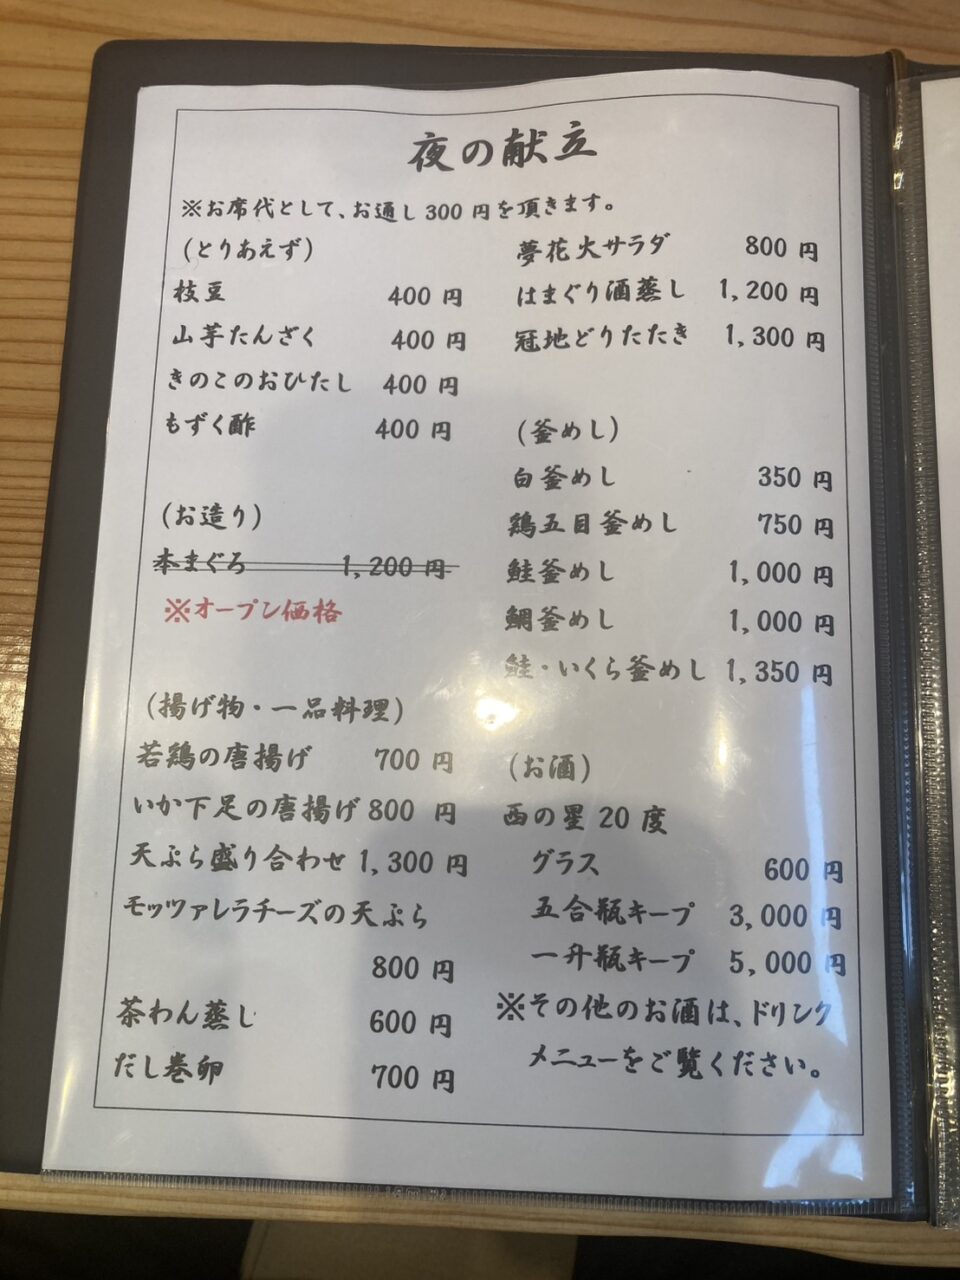 夜の献立
※お席代として、お通し300円を頂きます。
(とりあえず)
枝豆 400円
山芋たんざく 400円
きのこのおひたし 400円
もずく酢 400円
(お造り)
本まぐろ 1,200円
※オープン価格
(揚げ物・一品料理)
若鶏の唐揚げ 700円
いか下足の唐揚げ 800円
天ぷら盛り合わせ 1,300円
モッツァレラチーズの天ぷら
800円
茶わん蒸し 600円
だし巻卵 700円
夢花火サラダ 800円
はまぐり酒蒸し 1,200円
冠地どりたたき 1,300円
(釜めし)
白釜めし 350円
鶏五目釜めし 750円
鮭釜めし 1,000円
鯛釜めし 1,000円
鮭・いくら釜めし 1,350円
(お酒)
西の星20度
グラス 600円
五合瓶キープ 3,000円
一升瓶キープ 5,000円
※その他のお酒は、ドリンク
メニューをご覧ください。